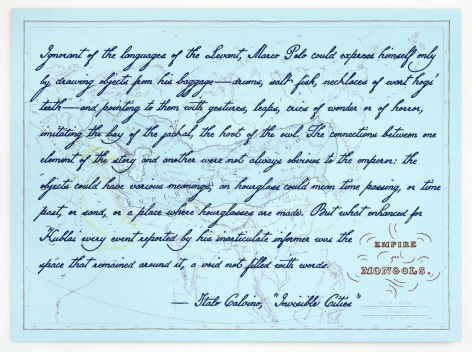 Ignorant of the languages of the Levant, Marco Polo could express himself only
by drawing objects from his baggage—drums, salt fish, necklaces of wart hogs'
teeth—and pointing to them with gestures, leaps, cries of wonder or of horror,
imitating the bay of the jackal, the hoot of the owl. The connections between one
element of the story and another were not always obvious to the emperor: the
objects could have various meanings, an hourglass could mean time passing, or time
past, or sand, or a place where hourglasses are made. But what enhanced for
Kublai every event reported by his inarticulate informer was the
space that remained around it, a void not filled with words.
— Italo Calvino, "Invisible Cities"
EMPIRE
MONGOLS.